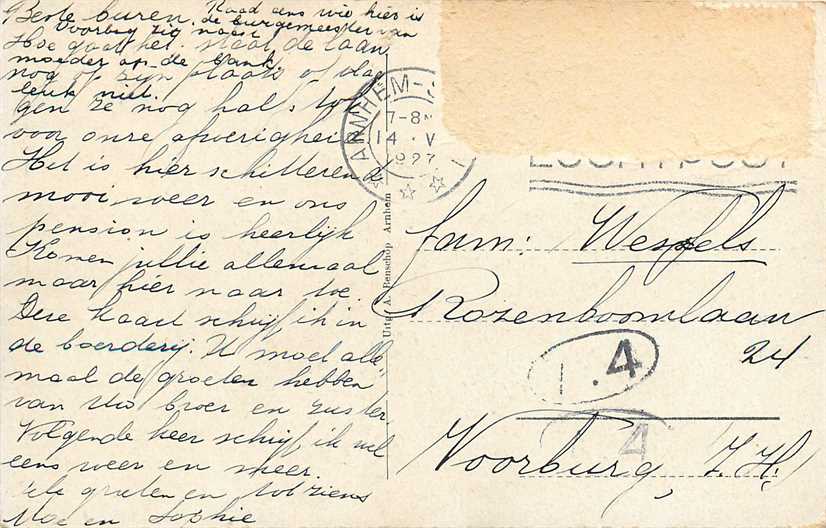 Beste buren. Raad eens wie hier is
de burgemeester van
Voorburg zijn naast
Hoe gaat het. staat de laan
moeder op de bank
nog op zijn plaats of vla
leuk niet.
gen ze nog hals tol
voor onze afwezigheid
Het is hier schitterend
mooi weer en ons
pension is heerlijk
Komen jullie allemaal
maar hier naar toe.
Deze kaart schrijf ik in
de boerderij. U moet alle
maal de groeten hebben
van Uw broer en zuster.
Volgende keer schrijf ik wel
eens weer en meer.
groeten en tot ziens
en Sophie
ARNHEM-S
7-8N
14 . V
1927
1
LUCHTPOST
Uitg. A. Renschop Arnhem
fam: Wessels
Rozenboomlaan
24
1.4
4
Voorburg, Z.H.